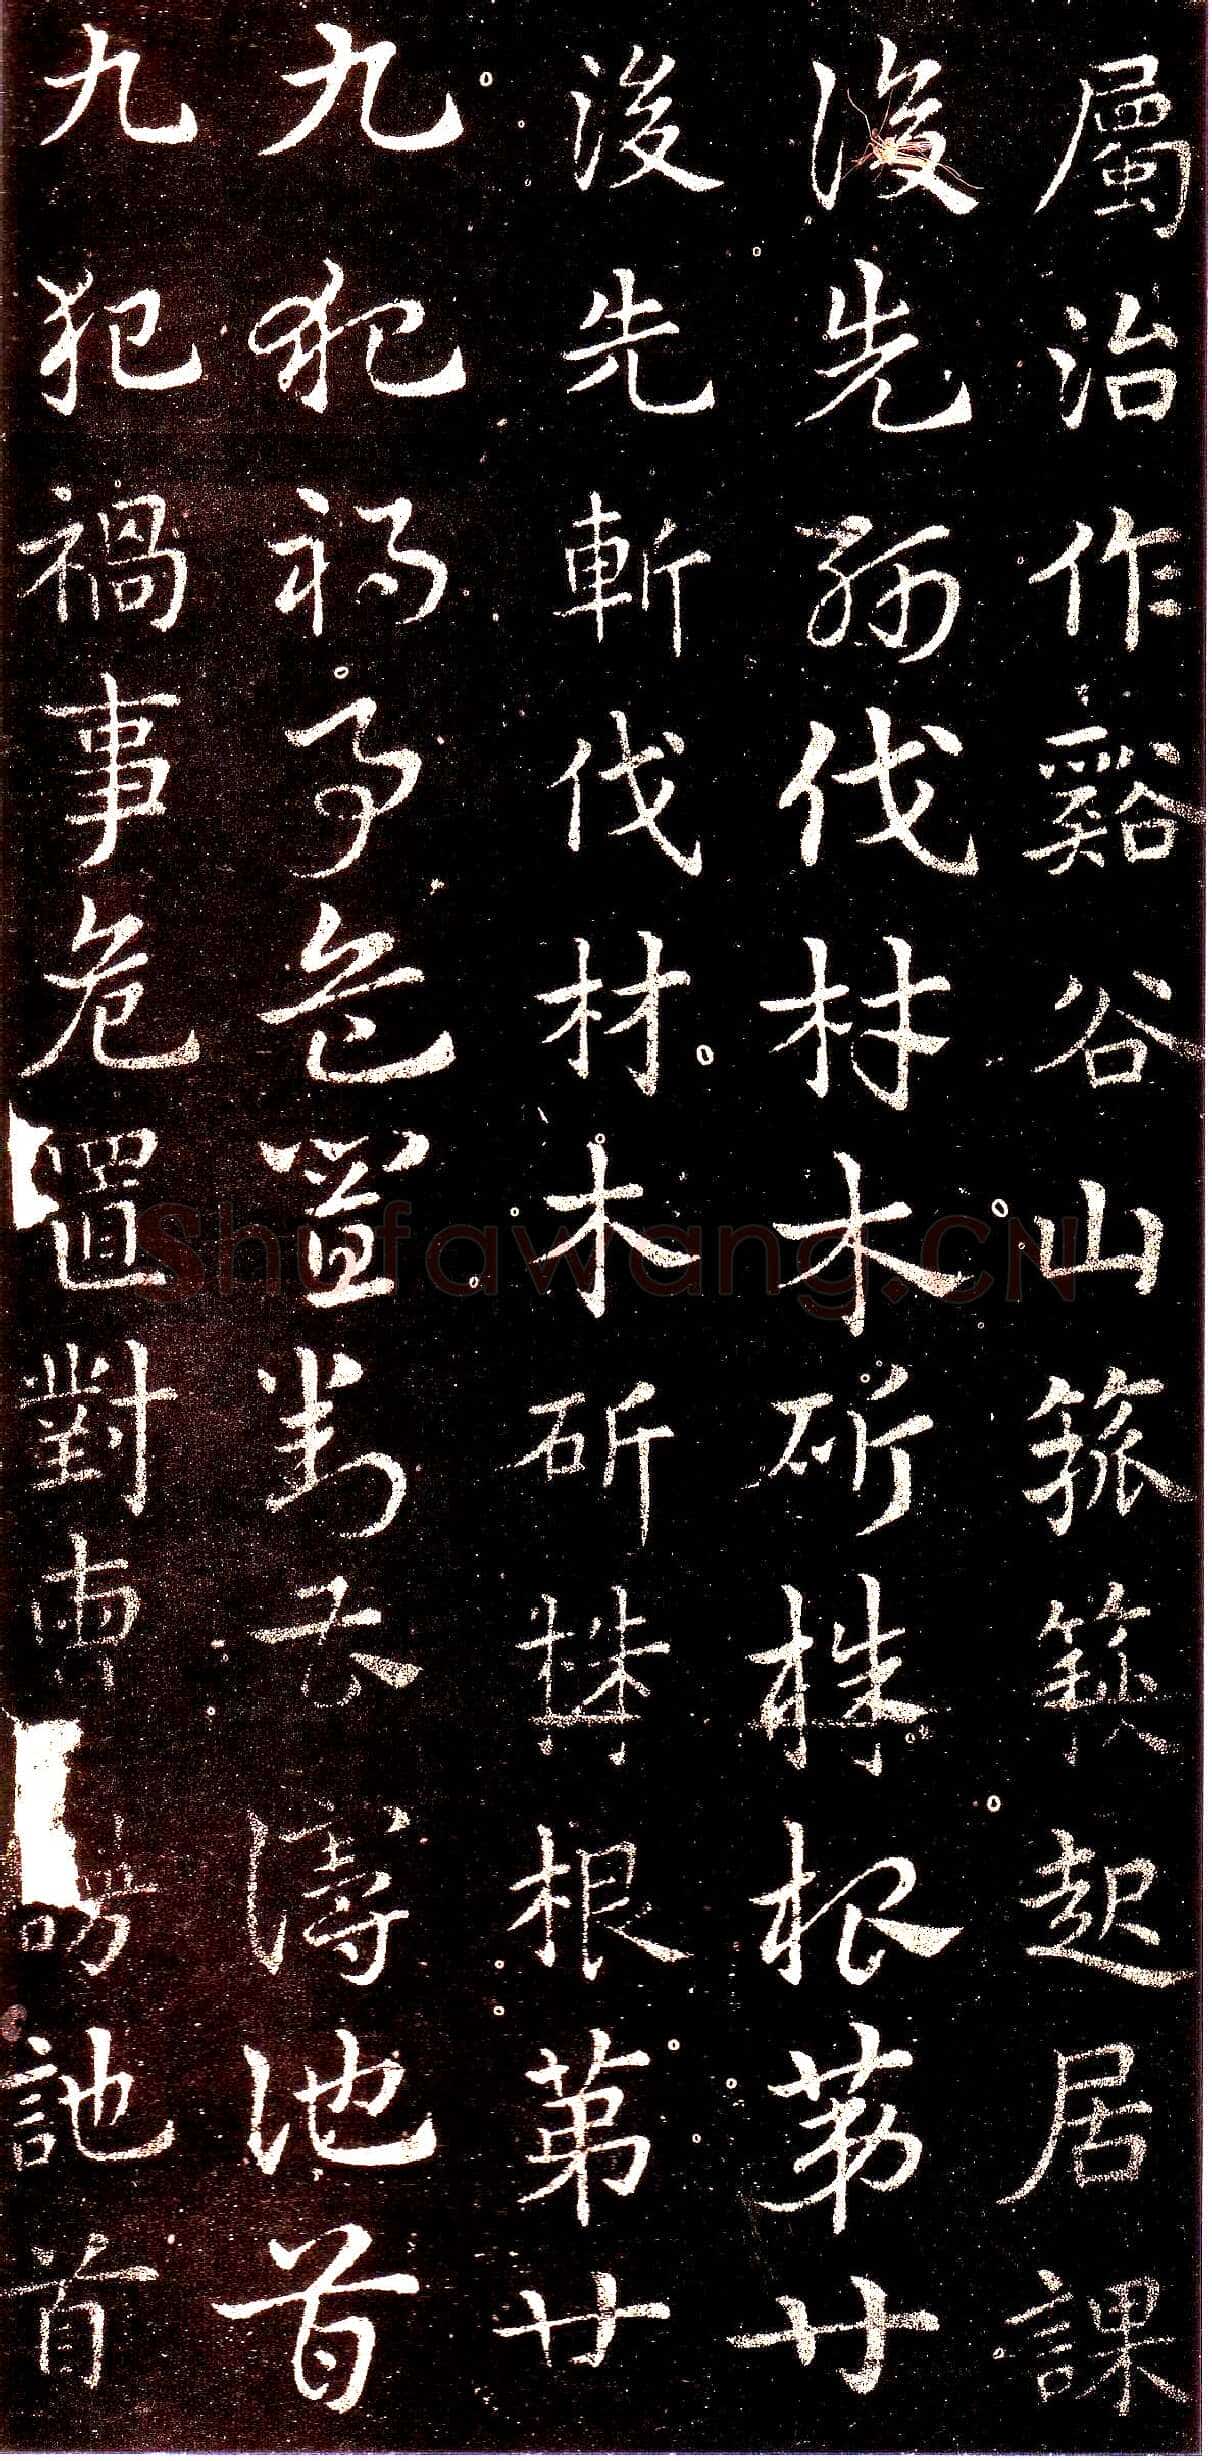 屬治作谿谷山箛篍起居課
後先斬伐材木斫株根第廿
後先斬伐材木斫株根第廿
九犯禍事危置對曹訑首
九犯禍事危置對曹訑首
Shufawang.CN